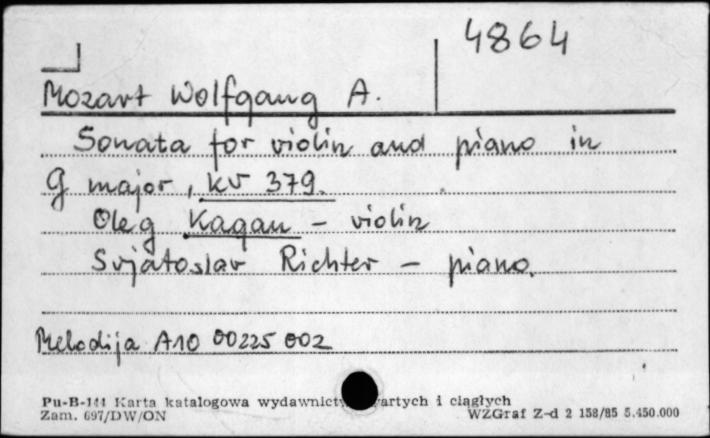 4864
Mozart Wolfgang A.
Sonata for violin and piano in
G major, KV 379.
Oleg Kagan - violin
Svjatoslav Richter - piano.
Melodija A10 00225 002
Pu-B-144 Karta katalogowa wydawnictw zwartych i ciągłych
Zam. 697/DW/ON WZGraf Z-d 2 158/85 5.450.000